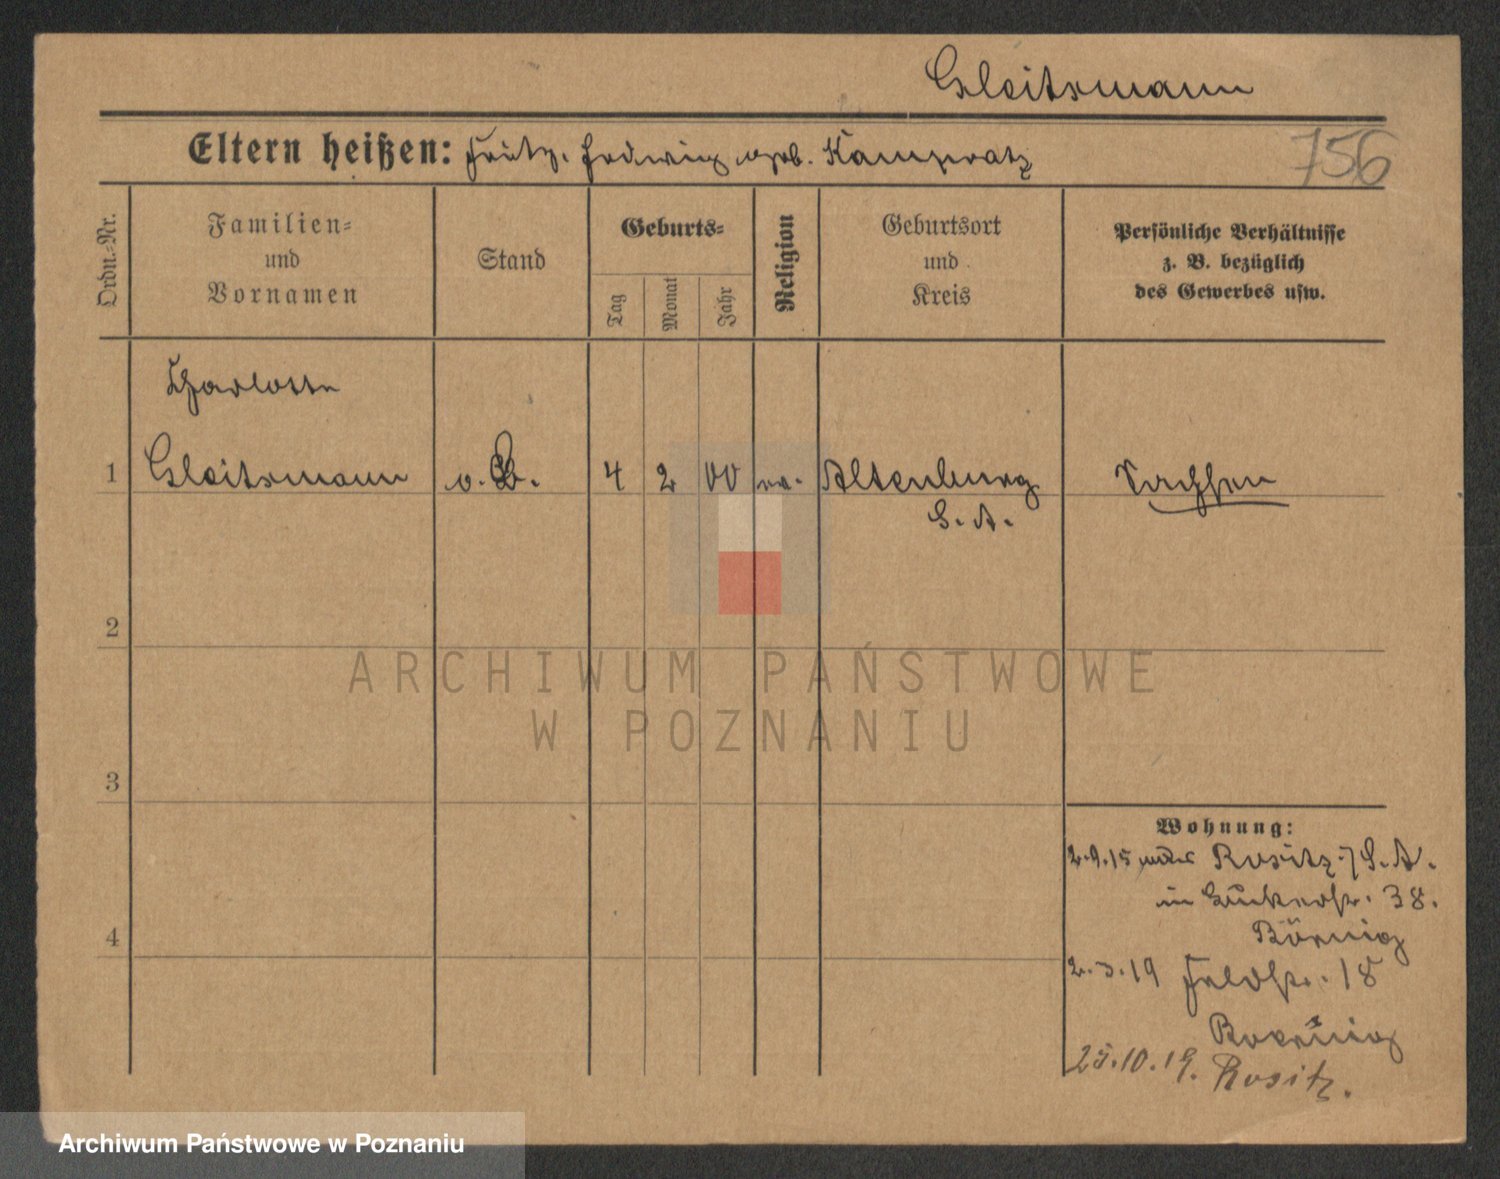 Gleitsmann
Eltern heißen: Fritz. Hedwig geb. Kampratz
756
Ordn.-Nr.
Familien-
und
Vornamen
Stand
Geburts-
Tag
Monat
Jahr
Religion
Geburtsort
und
Kreis
Persönliche Verhältnisse
z. B. bezüglich
des Gewerbes usw.
Charlotte
1 Gleitsmann o. B. 4 2 00 ev. Altenburg Sachsen
S. A.
2
ARCHIWUM PAŃSTWOWE
W POZNANIU
3
4
Wohnung:
2.9.15 Rositz /S. A.
in 38.
Börnig
2.3.19 Feldstr. 18
Boernig
25.10.19. Rositz.
Archiwum Państwowe w Poznaniu